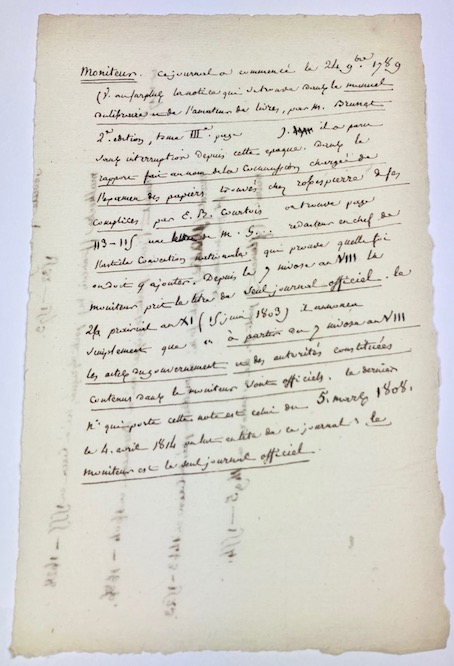 Moniteur. Ce journal a commencé le 24 9bre 1789
(v. au surplus la notice qui se trouve dans le manuel
du libraire et de l'amateur de livres, par m. Brunet
2e edition, tome III, page ). il a paru
sans interruption depuis cette epoque. Dans le
rapport fait au nom de la Commission chargée de
l'examen des papiers trouvés chez robespierre & ses
complices, par E. B. Courtois on trouve page
113-115 une lettre de m. G... redacteur en chef de
l'article Convention nationale qui prouve quelle foi
on doit y ajouter. Depuis le 7 nivose an VIII le
moniteur prit le titre de seul journal officiel. le
prairial an XI (15 juin 1803) il annonca
simplement que à partir du 7 nivose an VIII
les actes du gouvernement et des autorités constituées
contenus dans le moniteur sont officiels. le dernier
n° qui porte cette note est celui du 5. mars 1808.
le 4. avril 1814 on lut en tete de ce journal : le
moniteur est le seul journal officiel.